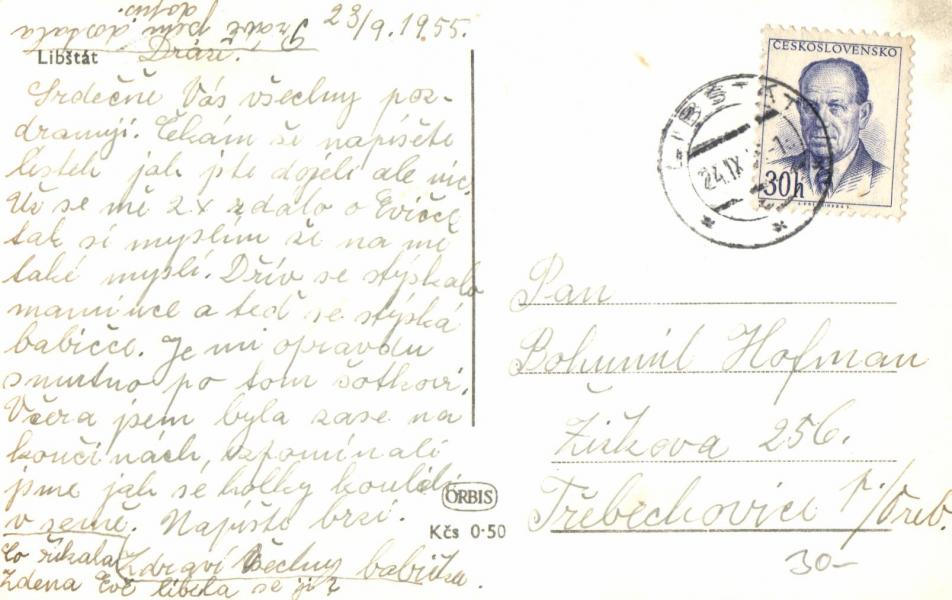 23/9.1955.
Právě jsem dostala
dopis.
Libštát
Drazí.
Srdečně Vás všechny poz-
dravuji. Čekám že napíšete
lístek jak jste dojeli ale nic.
Už se mě 2x zdálo o Evičce
tak si myslím že na mě
také myslí. Dřív se stýskalo
mamince a teď se stýská
babičce. Je mi opravdu
smutno po tom šotkovi.
Včera jsem byla zase na
končinách, vzpomínali
jsme jak se holky koulely
v semě. Napište brzi.
Zdraví všechny babička.
Co říkala
Zdena Evě líbila se jí?
ORBIS
Kčs 0·50
ČESKOSLOVENSKO
30h
LIBŠTÁT
24.IX
Pan
Bohumil Hofman
Žižkova 256.
Třebechovice p/Oreb
30-